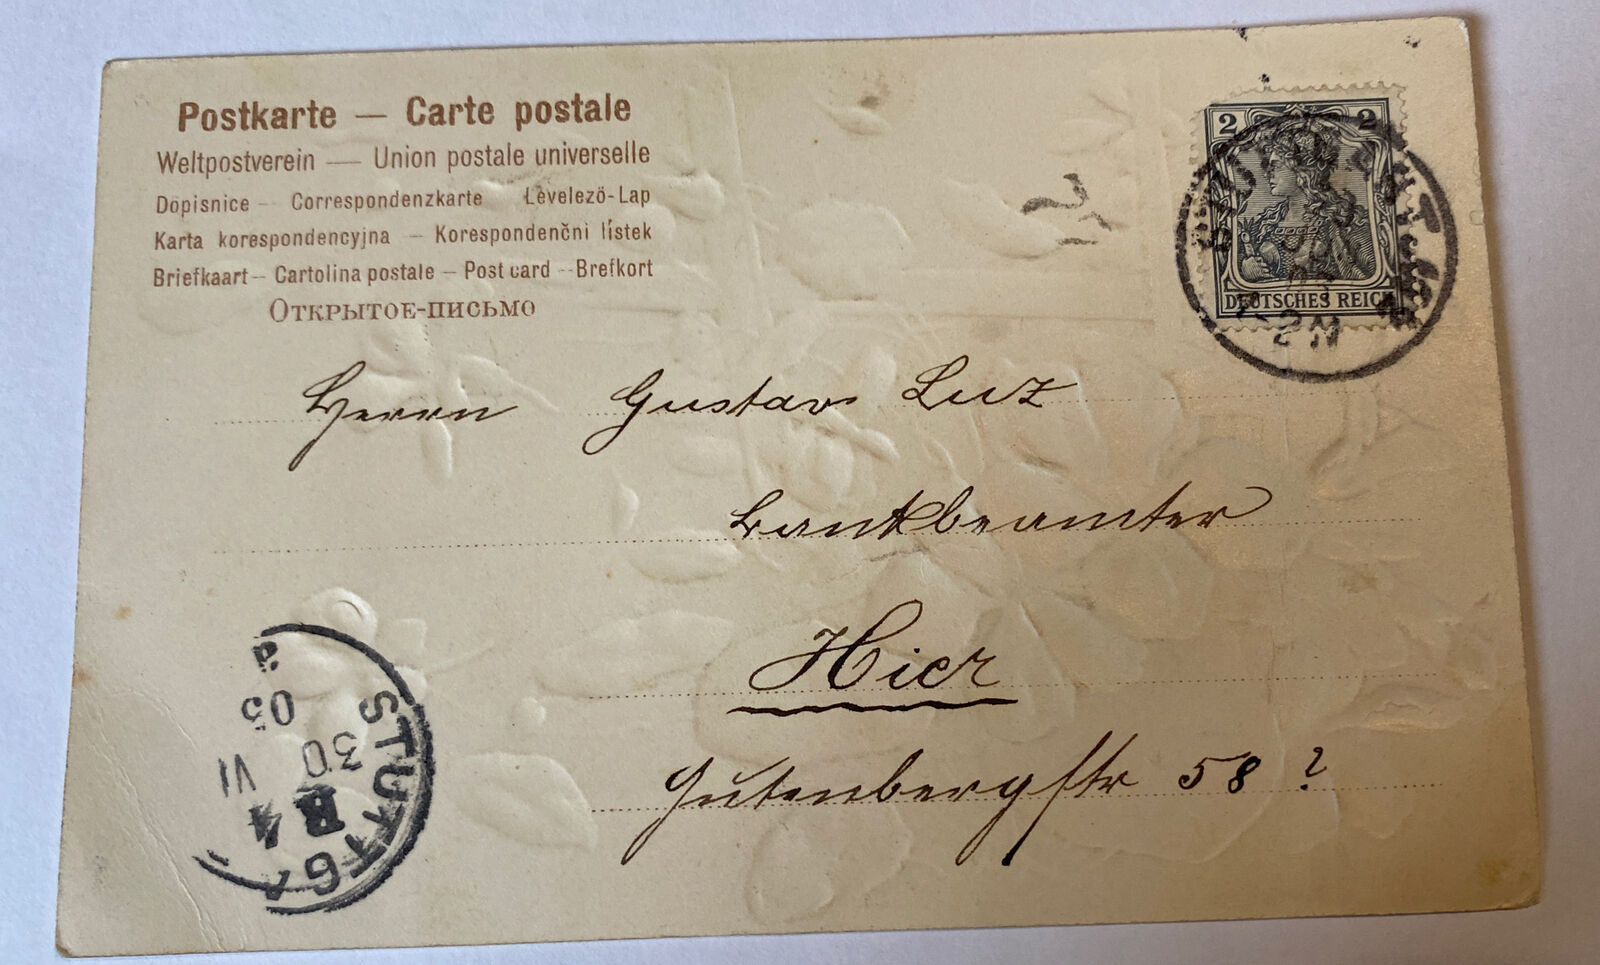 Postkarte — Carte postale
Weltpostverein — Union postale universelle
Dopisnice – Correspondenzkarte Levelező-Lap
Karta korespondencyjna – Korespondenčni lístek
Briefkaart – Cartolina postale – Post card – Brefkort
Открытое-письмо
2 2
DEUTSCHES REICH
2 N
Herrn Gustav Luz
Bankbeamter
Hier
Gutenbergstr 58 ?
STUTTG
B 4
30 VI
05